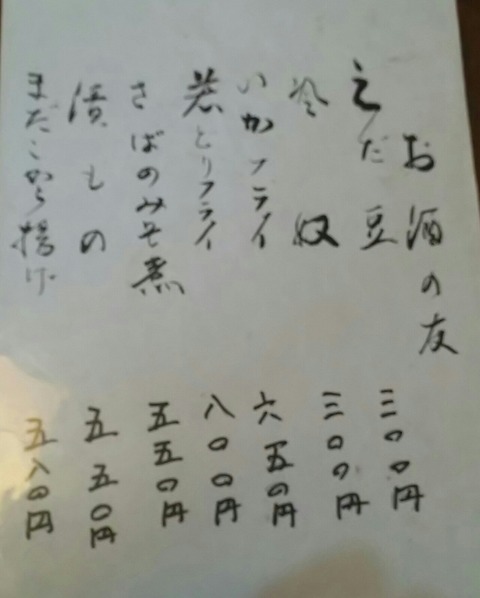 お酒の友
えだ豆 三〇〇円
冷奴 三〇〇円
いかフライ 六五〇円
若とりフライ 八〇〇円
さばのみそ煮 五五〇円
漬もの 五五〇円
まだこから揚げ 五八〇円